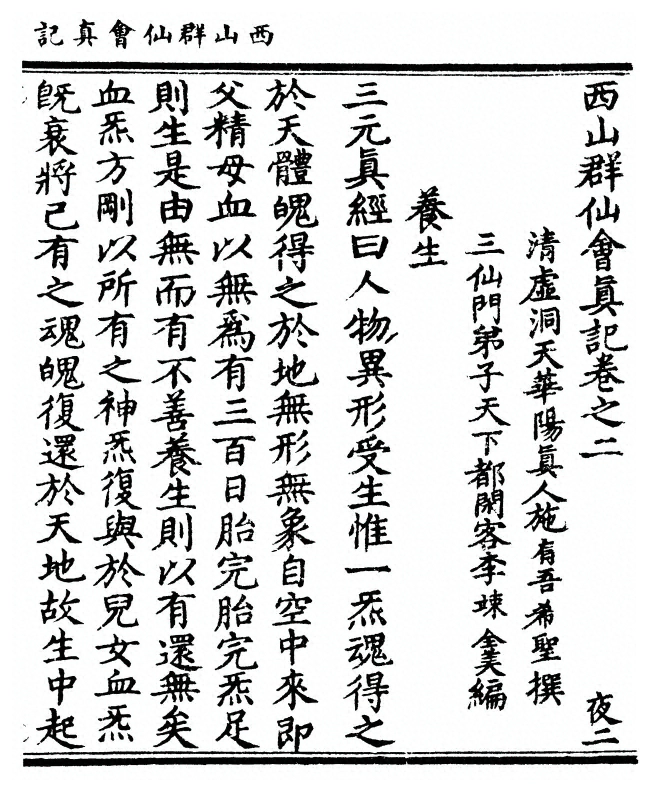 西山群仙會真記
西山群仙會眞記卷之二 夜二
清虛洞天華陽眞人施有吾希聖撰
三仙門弟子天下都閑客李竦全美編
養生
三元眞經曰人物異形受生惟一炁魂得之
於天體魄得之於地無形無象自空中來即
父精母血以無爲有三百日胎完胎完炁足
則生是由無而有不善養生則以有還無矣
血炁方剛以所有之神炁復與於兒女血炁
旣衰將己有之魂魄復還於天地故生中起